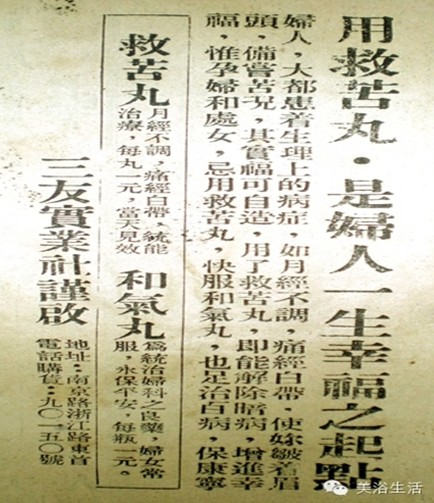 用救苦丸·是婦人一生幸福之起點
婦人，大都患着生理上的病症，如月經不調，痛經白帶，使妳皺着眉
頭，備嘗苦況，其實福可自造，用了救苦丸，即能解除暗病，增進幸
福，惟孕婦和處女，忌用救苦丸，快服和氣丸，也是治百病，保康寧
救苦丸
月經不調，痛經白帶，統能
治療，每丸一元，當天見效
和氣丸
爲統治婦科之良藥，婦女常
服，永保平安，每瓶一元。
三友實業社謹啟
地址：南京路浙江路東首
電話購貨：九〇一五〇號
美浴生活